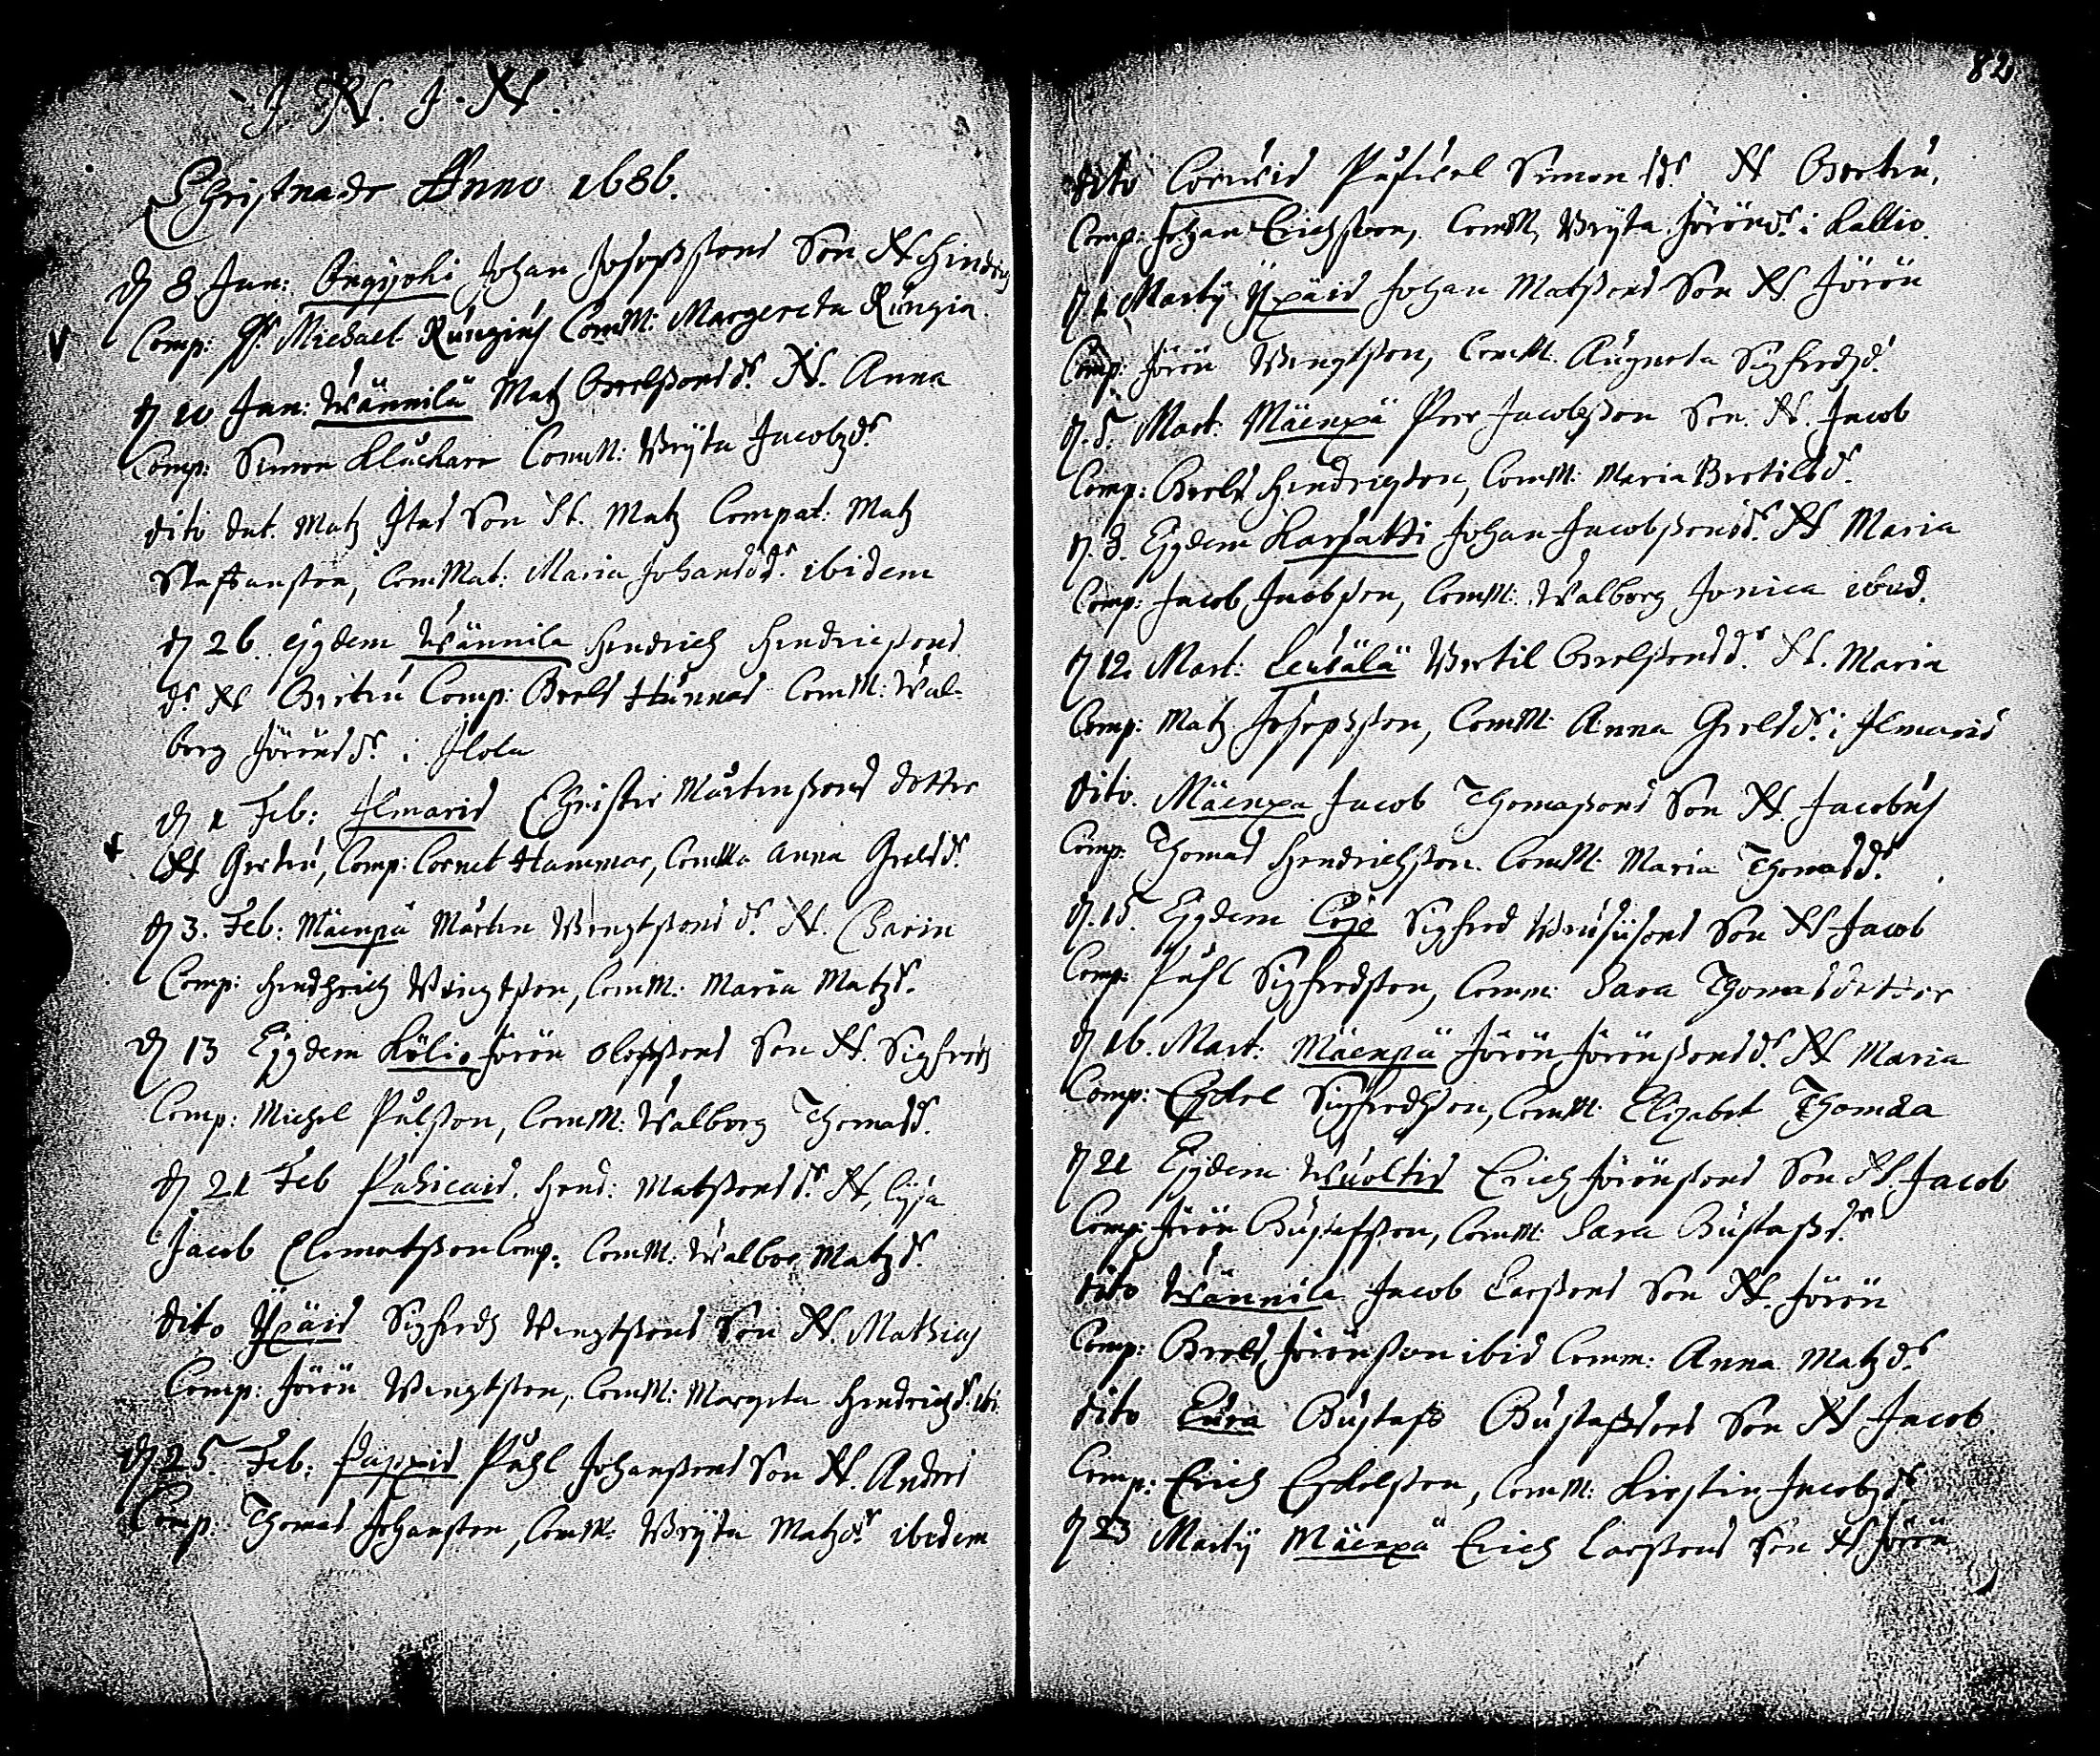 J. N. J. N.
Christnade Anno 1686.
d 8 Jan: Johan Josepssons Son N Hindrich
Comp: H. Michael Rungius ComM: Margereta Rungia.
d 10 Jan: Wännilä Matz Grelssons dr. N. Anna
Comp: Simon Kluckare ComM: Bryta Jacobzdr.
dito dat. Matz Son N. Matz Compat: Matz
Staffansson, ComMat: Maria Johansdr. ibidem
d 26 ejgdem Wännila Hendrich Hendricssons
dr N Gertru Comp: Grels Hunnas ComM: Wal-
borg Jörönsdr. i Ilola
d 1 Feb: Ilmaris Christer Mårtenssons dotter
N Gertru, Comp: Cornet Hammar, ComMa Anna Grelsdr.
d 3. Feb: Mäenpä Mårten Bengtssons dr. N. Charin
Comp: Hendhrich Bengtsson, ComM: Maria Matzdr.
d 13 Ejgdem Kölio Jörön Olofssons Son N. Sigfredh
Comp: Michel Pålsson, ComM: Walborg Thomasdr.
d 21 Feb Hend: Matssons dr. N, Lisa
Jacob Clematsson Comp. ComM: Walbor Matzdr.
dito Ypäis Sigfredh Bengtssons Son N. Mathias
Comp: Jörön Bengtsson, ComM: Margeta Hendrichdr. ibi.
d 25. Feb: Pappis Påhl Johanssons Son N. Anders
Comp: Thomas Johansson, ComM: Bryta Matzdr ibidem
82
dito Simon dr. N Gertru,
Comp: Johan Erichsson, ComM, Bryta Jöröndr. i Kallio.
d 1 Martij Ypäis Johan Matssons Son N. Jörön
Comp: Jörön Bengtsson, ComM. Augneta Sigfredzdr.
d. 5. Mart. Mäenpä Peer Jacobsson Son. N. Jacob
Comp: Grels Hendrigson, ComM: Maria Bertilsdr.
d. 8. Ejgdem Karhatti Johan Jacobssons dr. N Maria
Comp: Jacob Jacobsson, ComM: Walborg Jonica ibid.
d 12. Mart: Bertil Grelssons dr. N. Maria
Comp: Matz Josepsson, ComM: Anna Grelsdr. i Ilmaris
dito. Mäenpä Jacob Thomassons Son N. Jacobus
Comp: Thomas Hendrichsson. ComM: Maria Thomasdr.
d. 15. Ejgdem Sigfred Son N Jacob
Comp: Påhl Sigfredsson, Comm: Sara Thomasdotter
d 16. Mart: Mäenpä Jörön Jörönssons dr. N Maria
Comp: Eskel Sigfredhsson, ComM: Elizabet Thomda
d 21 Ejgdem Wuoltis Erich Jörönssons Son N. Jacob
Comp: Jörön Gustafsson, ComM: Sara Gustafsdr.
dito Wännila Jacob Larssons Son N. Jörön
Comp: Grels Jörönsson ibid Comm: Anna Matzdr.
dito Eura Gustafs Gustafssons Son N Jacob
Comp: Erich Eskelsson, ComM: Kirstin Jacobzdr.
d 23 Martij Mäenpä Erich Larssons Son N Jörön